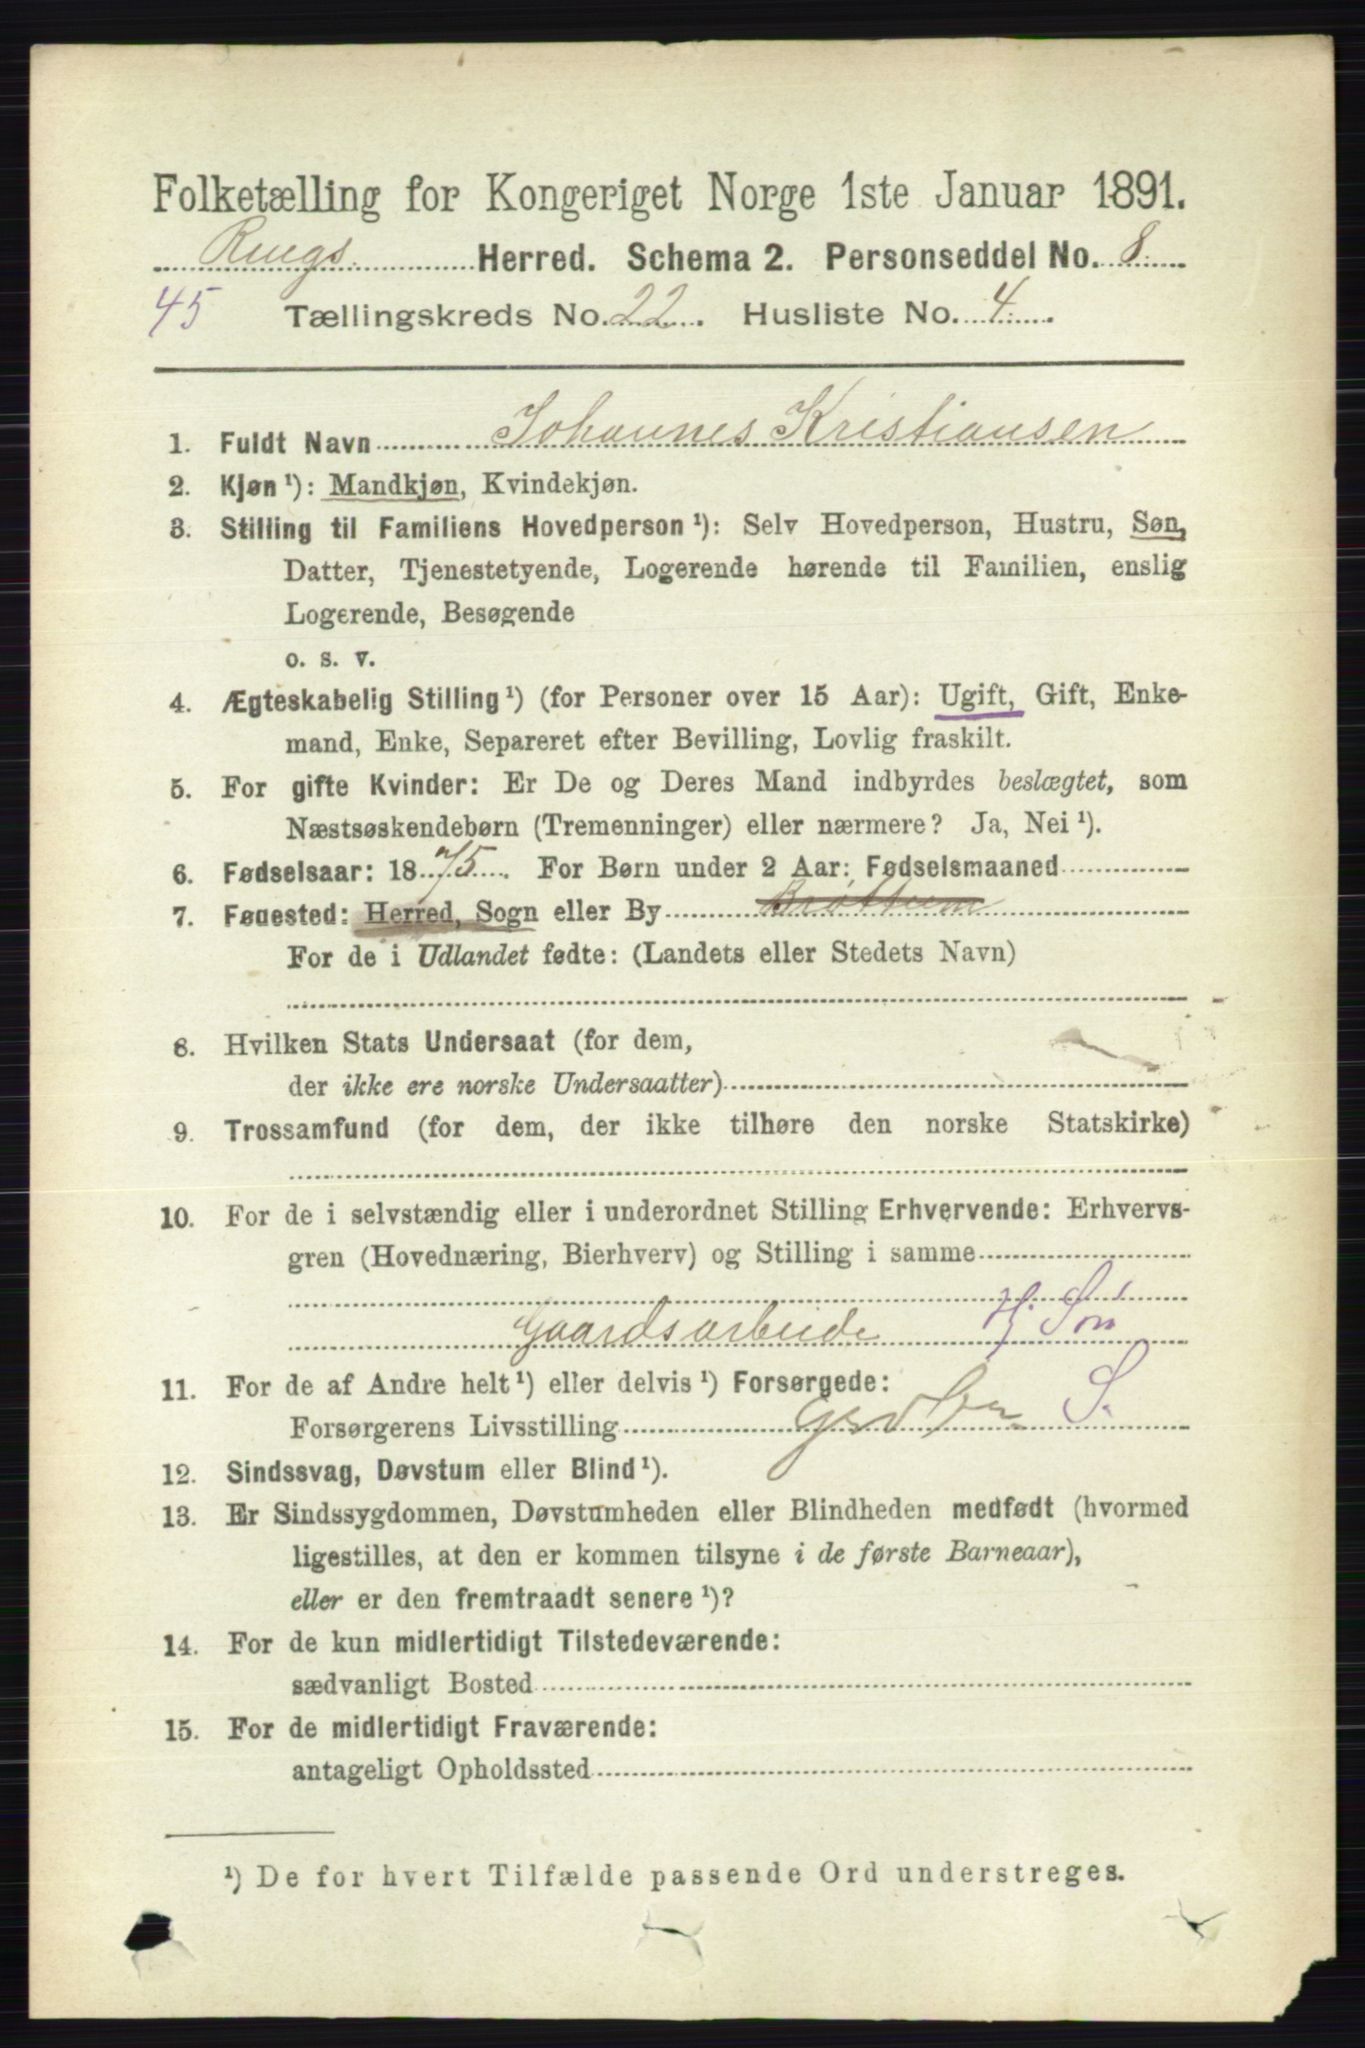 Folketælling for Kongeriget Norge 1ste Januar 1891.
Rings. Herred. Schema 2. Personseddel No. 8.
45 Tællingskreds No. 22. Husliste No. 4.
1. Fuldt Navn Johannes Kristiansen
2. Kjøn ¹): Mandkjøn, Kvindekjøn.
3. Stilling til Familiens Hovedperson ¹): Selv Hovedperson, Hustru, Søn,
Datter, Tjenestetyende, Logerende hørende til Familien, enslig
Logerende, Besøgende
o. s. v.
4. Ægteskabelig Stilling ¹) (for Personer over 15 Aar): Ugift, Gift, Enke-
mand, Enke, Separeret efter Bevilling, Lovlig fraskilt.
5. For gifte Kvinder: Er De og Deres Mand indbyrdes beslægtet, som
Næstsøskendebørn (Tremenninger) eller nærmere? Ja, Nei ¹).
6. Fødselsaar: 1875. For Børn under 2 Aar: Fødselsmaaned
7. Fødested: Herred, Sogn eller By Brøttum
For de i Udlandet fødte: (Landets eller Stedets Navn)
8. Hvilken Stats Undersaat (for dem,
der ikke ere norske Undersaatter)
9. Trossamfund (for dem, der ikke tilhøre den norske Statskirke)
10. For de i selvstændig eller i underordnet Stilling Erhvervende: Erhvervs-
gren (Hovednæring, Bierhverv) og Stilling i samme
Gaardsarbeide Hj. Søn
11. For de af Andre helt ¹) eller delvis ¹) Forsørgede:
Forsørgerens Livsstilling S.
12. Sindssvag, Døvstum eller Blind ¹).
13. Er Sindssygdommen, Døvstumheden eller Blindheden medfødt (hvormed
ligestilles, at den er kommen tilsyne i de første Barneaar),
eller er den fremtraadt senere ¹)?
14. For de kun midlertidigt Tilstedeværende:
sædvanligt Bosted
15. For de midlertidigt Fraværende:
antageligt Opholdssted
¹) De for hvert Tilfælde passende Ord understreges.